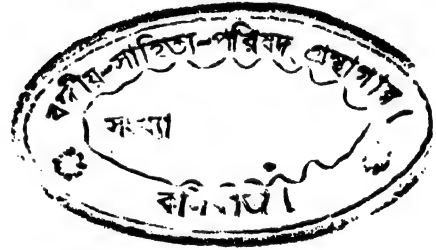 বঙ্গীয়-সাহিত্য-পরিষদ গ্রন্থাগার।
সংখ্যা
কলিকাতা।